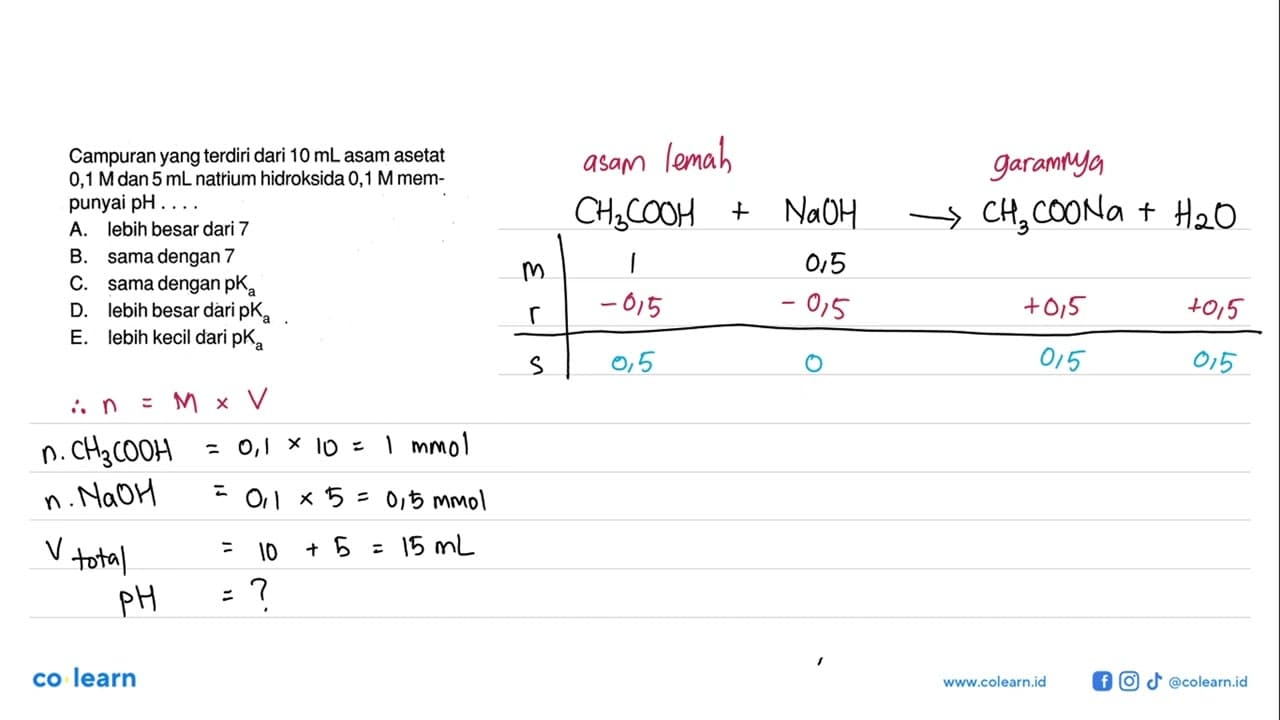 Campuran yang terdiri dari 10 mL asam asetat
0,1 M dan 5 mL natrium hidroksida 0,1 M mem-
punyai pH . . . .
A. lebih besar dari 7
B. sama dengan 7
C. sama dengan pKₐ
D. lebih besar dari pKₐ .
E. lebih kecil dari pKₐ
∴ n = M × V
n. CH₃COOH = 0,1 × 10 = 1 mmol
n. NaOH = 0,1 × 5 = 0,5 mmol
V total = 10 + 5 = 15 mL
pH = ?
asam lemah garamnya
CH₃COOH + NaOH → CH₃COONa + H₂O
m 1 0,5
r -0,5 -0,5 +0,5 +0,5
s 0,5 0 0,5 0,5
co learn
www.colearn.id @colearn.id